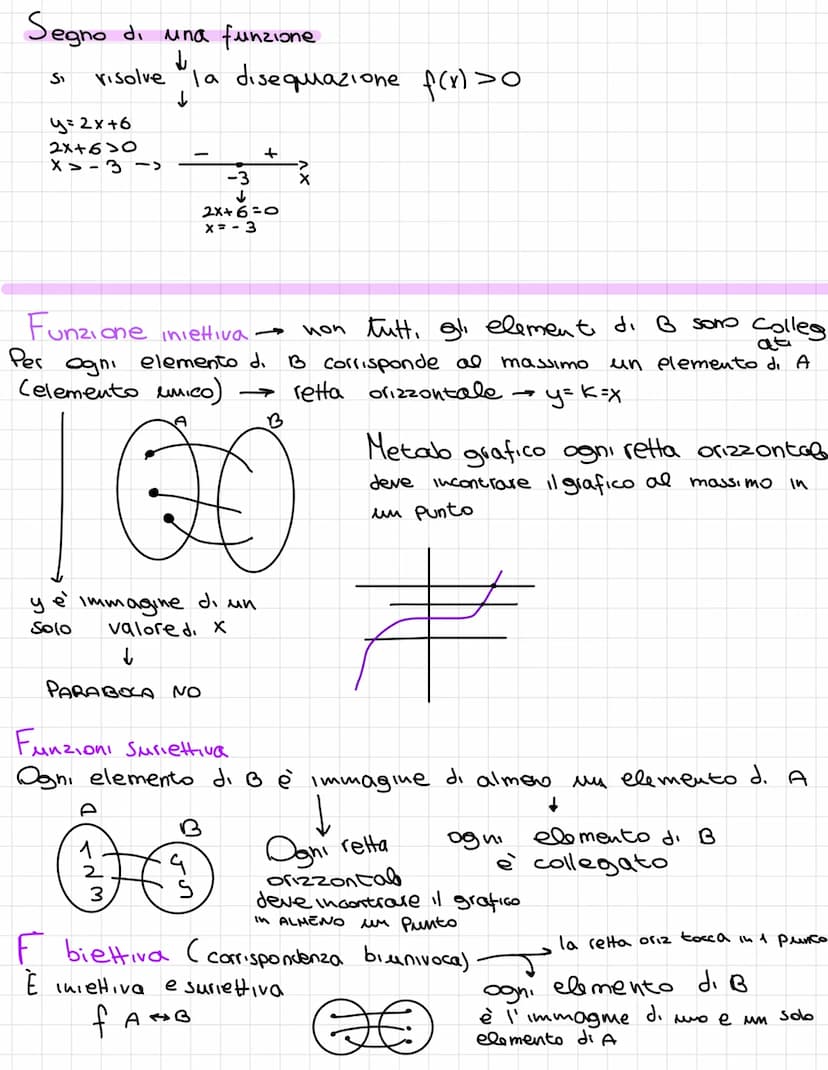 Segno di una funzione
si risolve la disequazione f(x) > 0
y = 2x+6
2x+6>0
x > - 3 ->
- +
-3 x
2x+6=0
x = - 3
Funzione iniettiva → non tutti gli elementi di B sono collegati
Per ogni elemento di B corrisponde al massimo un elemento di A
(elemento unico) → retta orizzontale → y = K = x
A B
Metodo grafico ogni retta orizzontale
deve incontrare il grafico al massimo in
un punto
y è immagine di un
solo valore di x
PARABOLA NO
Funzioni suriettiva
Ogni elemento di B è immagine di almeno un elemento di A
A B
1
2
3
4
5
Ogni retta
orizzontale
deve incontrare il grafico
in ALMENO un punto
ogni elemento di B
è collegato
F biettiva (corrispondenza biunivoca)
la retta oriz tocca in 1 punto
È iniettiva e suriettiva
f A ↔ B
ogni elemento di B
è l'immagine di uno e un solo
elemento di A